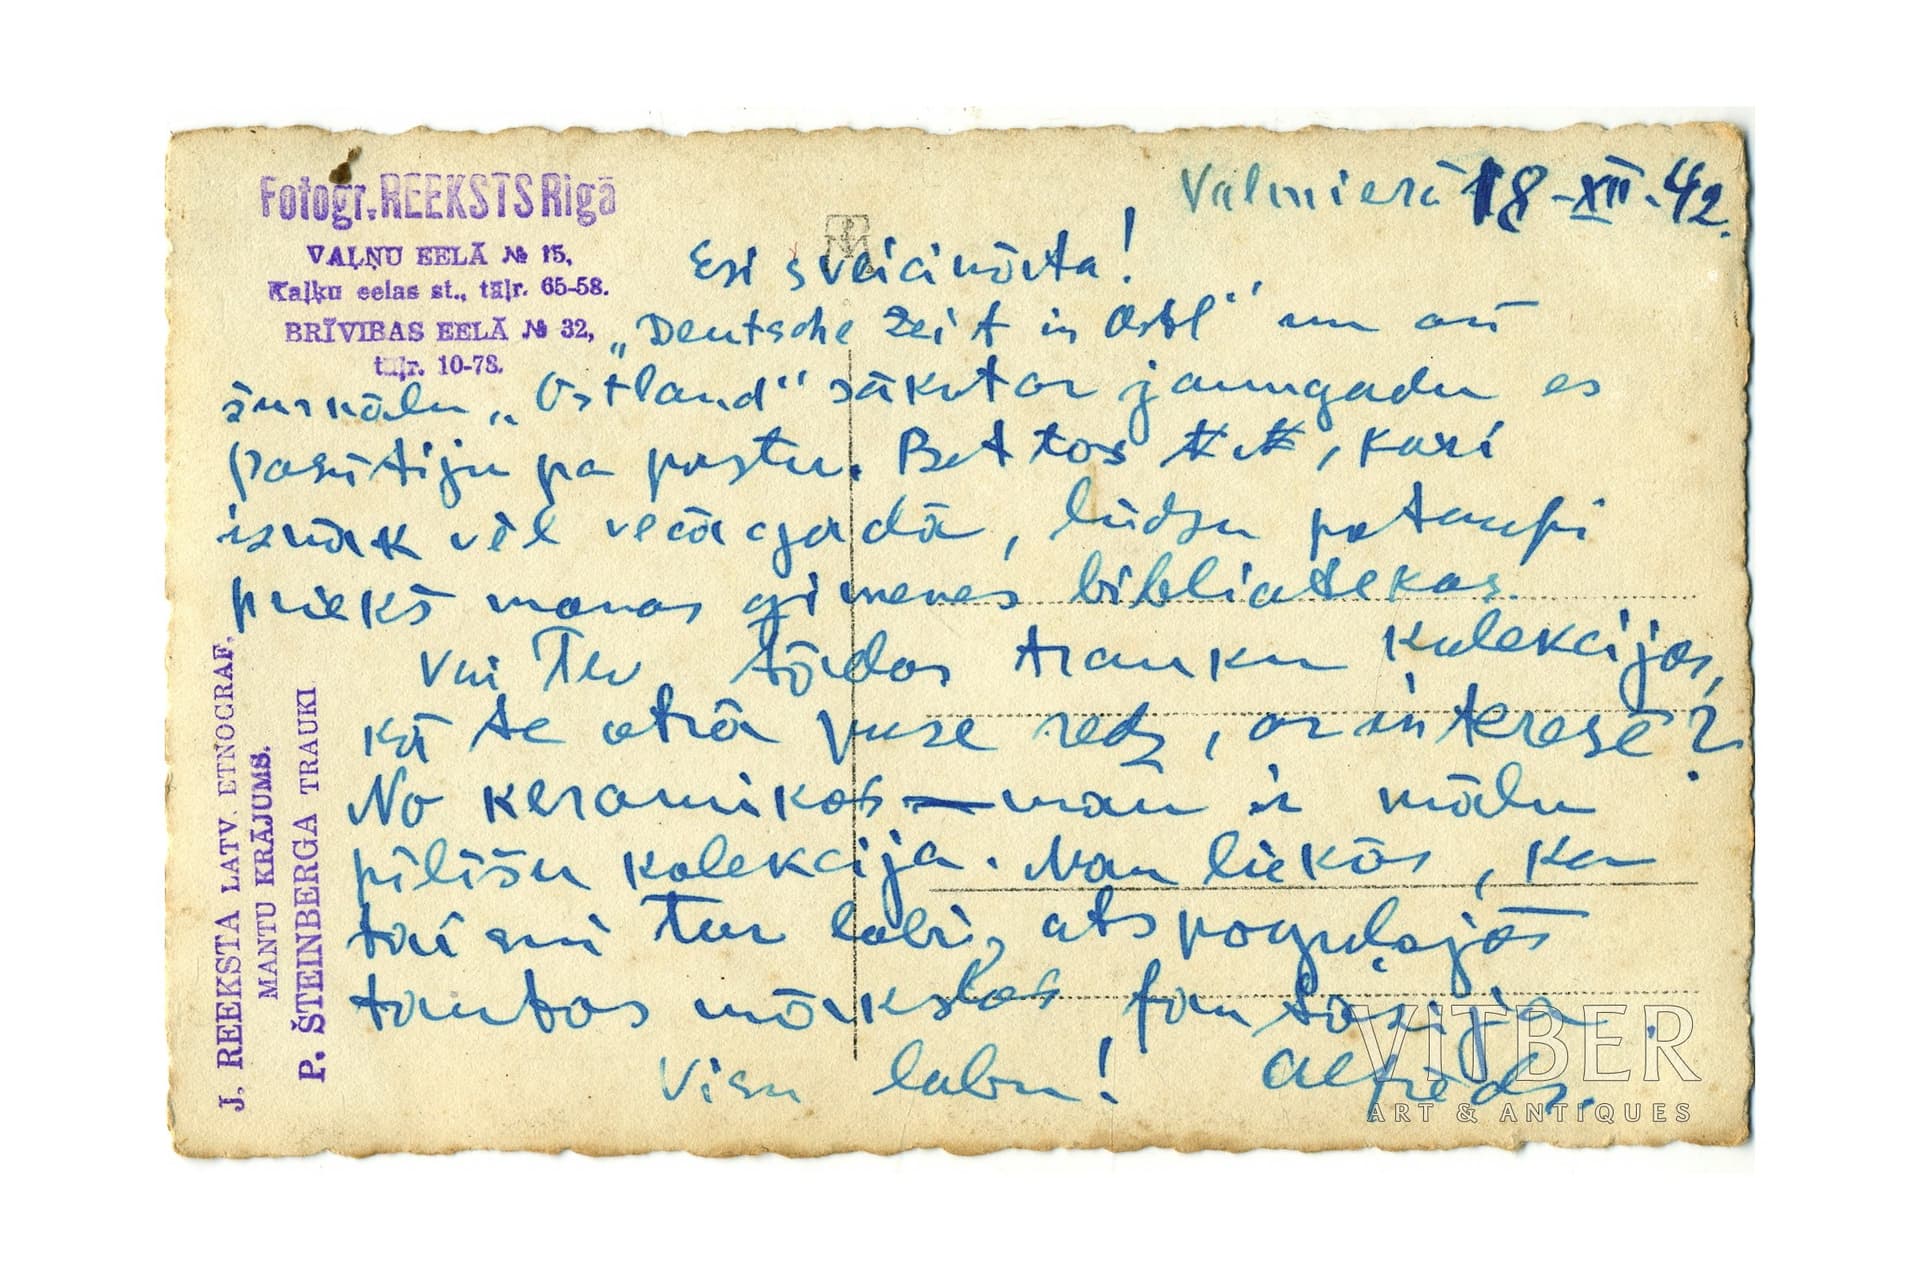 Fotogr. REEKSTS Rīgā
VAĻŅU EELĀ № 15,
Kaļķu eelas st., tāļr. 65-58.
BRĪVIBAS EELĀ № 32,
tāļr. 10-78.
J. REEKSTA LATV. ETNOGRAF.
MANTU KRĀJUMS.
P. ŠTEINBERGA TRAUKI
Valmierā 18-XII-42.
Esi sveicināta!
„Deutsche Zeit in Ostl“ un arī
žurnālu „Ostland“ sākot ar jaungadu es
pasūtīju pa pastu. Bet tos, kari
iznāk vēl vecā gadā, lūdzu pataupi
priekš manas ģimenes bibliotekas.
Vai Tev tādas trauku kolekcijas,
kā te otrā pusē redz, ar interesē?
No keramikas – man ir mālu
pīlīšu kolekcija. Man liekās, ka
taisni tur labi atspoguļojās
tautas mākslas fantāzija.
Visu labu! Alfrēds.
VITBER
ART & ANTIQUES